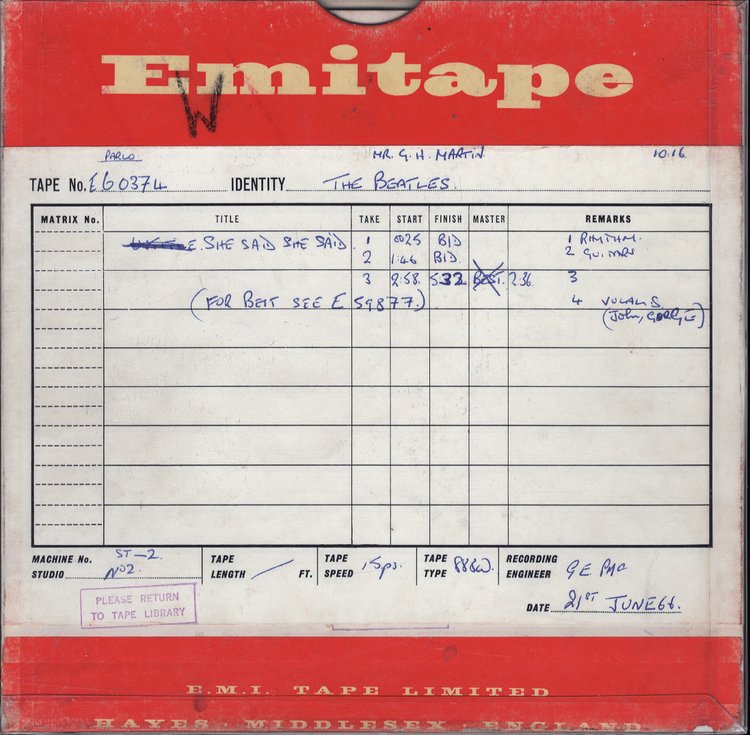 Emitape
W
PARLO. MR. G. H. MARTIN 10.16
TAPE No. E60374 IDENTITY THE BEATLES.
MATRIX No. TITLE TAKE START FINISH MASTER REMARKS
SHE SAID SHE SAID 1 0025 BID 1 RHYTHM.
2 1.46 BID. 2 GUITARS
3 2.58. 5.32 BEST. 2.36. 3
(FOR BEST SEE E 59877.) 4 VOCALS
(John, GEORGE)
MACHINE No. ST-2.
STUDIO No2.
TAPE
LENGTH FT.
TAPE
SPEED 15ps.
TAPE
TYPE
RECORDING
ENGINEER GE
DATE 21ST JUNE 66.
PLEASE RETURN
TO TAPE LIBRARY
E.M.I. TAPE LIMITED
HAYES MIDDLESEX ENGLAND